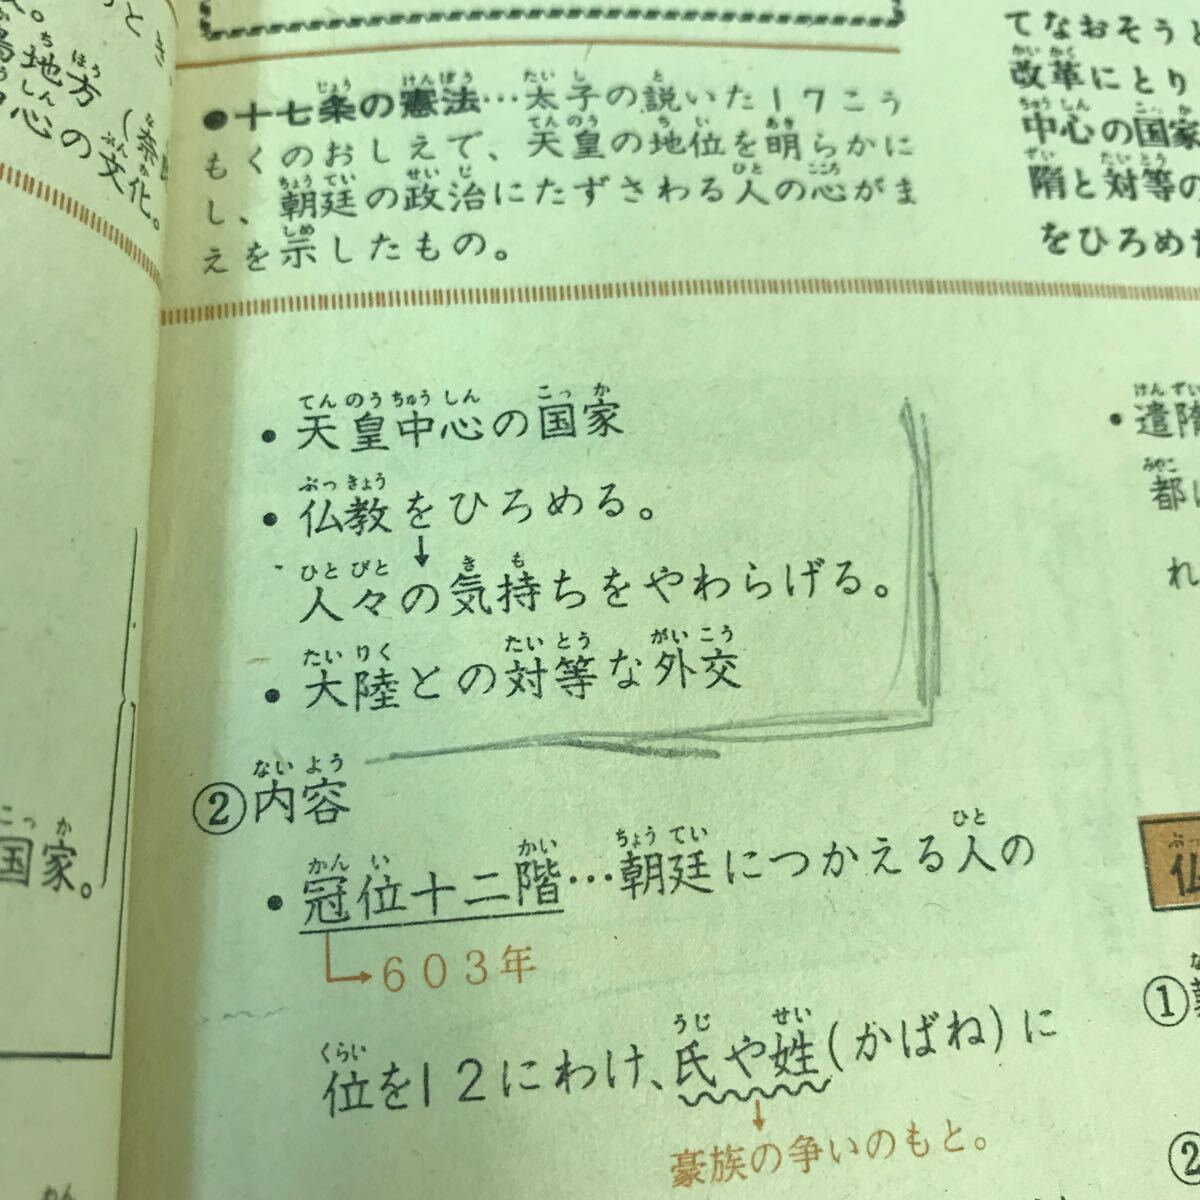 地方
心の文化。
国家。
●十七条の憲法…太子の説いた17こう
もくのおしえで、天皇の地位を明らかに
し、朝廷の政治にたずさわる人の心がま
えを示したもの。
・天皇中心の国家
・仏教をひろめる。
↓
人々の気持ちをやわらげる。
・大陸との対等な外交
②内容
・冠位十二階…朝廷につかえる人の
→603年
位を12にわけ、氏や姓(かばね)に
↓
豪族の争いのもと。
てなおそうと
改革にとり
中心の国家
隋と対等の
をひろめ
・遣隋
都
れ
仏
①
②